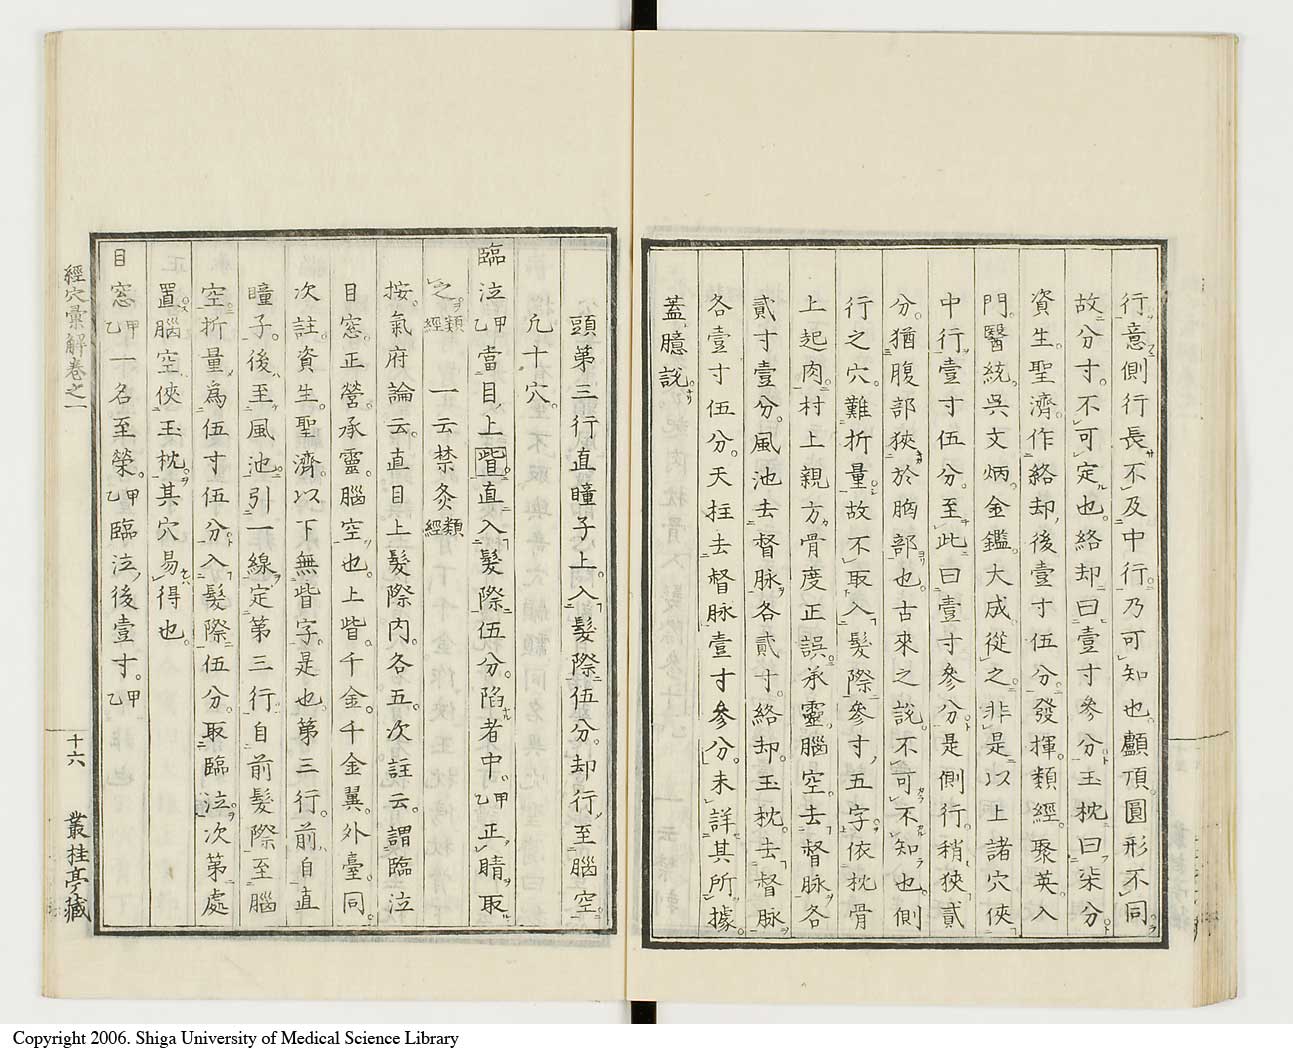 行意側行長不及中行。乃可知也。顱頂圓形不同。
故分寸。不可定也。絡却曰壹寸參分。玉枕曰柒分
資生。聖濟。作絡却後壹寸伍分。發揮。類經。聚英。入
門。醫統。吳文炳。金鑑。大成從之。非是以上諸穴俠
中行壹寸伍分。至此曰壹寸參分。是側行。稍狹貳
分。猶腹部狹於胸部也。古來之說。不可不知也。側
行之穴。難折量。故不取入髮際參寸。五字依枕骨
上起肉。村上親方。骨度正誤。承靈。腦空。去督脉。各
貳寸壹分。風池去督脉各貳寸。絡却。玉枕。去督脉
各壹寸伍分。天柱去督脉壹寸參分。未詳其所據。
蓋臆說。
頭第三行直瞳子上。入髮際伍分。却行至腦空。
凡十穴。
臨泣甲乙當目上眥直入髮際伍分。陷者中。甲乙正睛取
之類經 一云禁灸類經
按。氣府論云。直目上髮際內。各五。次註云。謂臨泣
目窓。正營。承靈。腦空也。上眥。千金。千金翼。外臺。同。
次註。資生。聖濟。以下無眥字。是也。第三行。前自直
瞳子。後至風池。引一線。定第三行。自前髮際至腦
空。折量爲伍寸伍分。入髮際伍分。取臨泣。次第處
置。腦空俠玉枕。其穴易得也。
目窓甲乙一名至榮。甲乙臨泣後壹寸。甲乙
經穴彙解卷之一
十六
叢桂亭藏
Copyright 2006. Shiga University of Medical Science Library